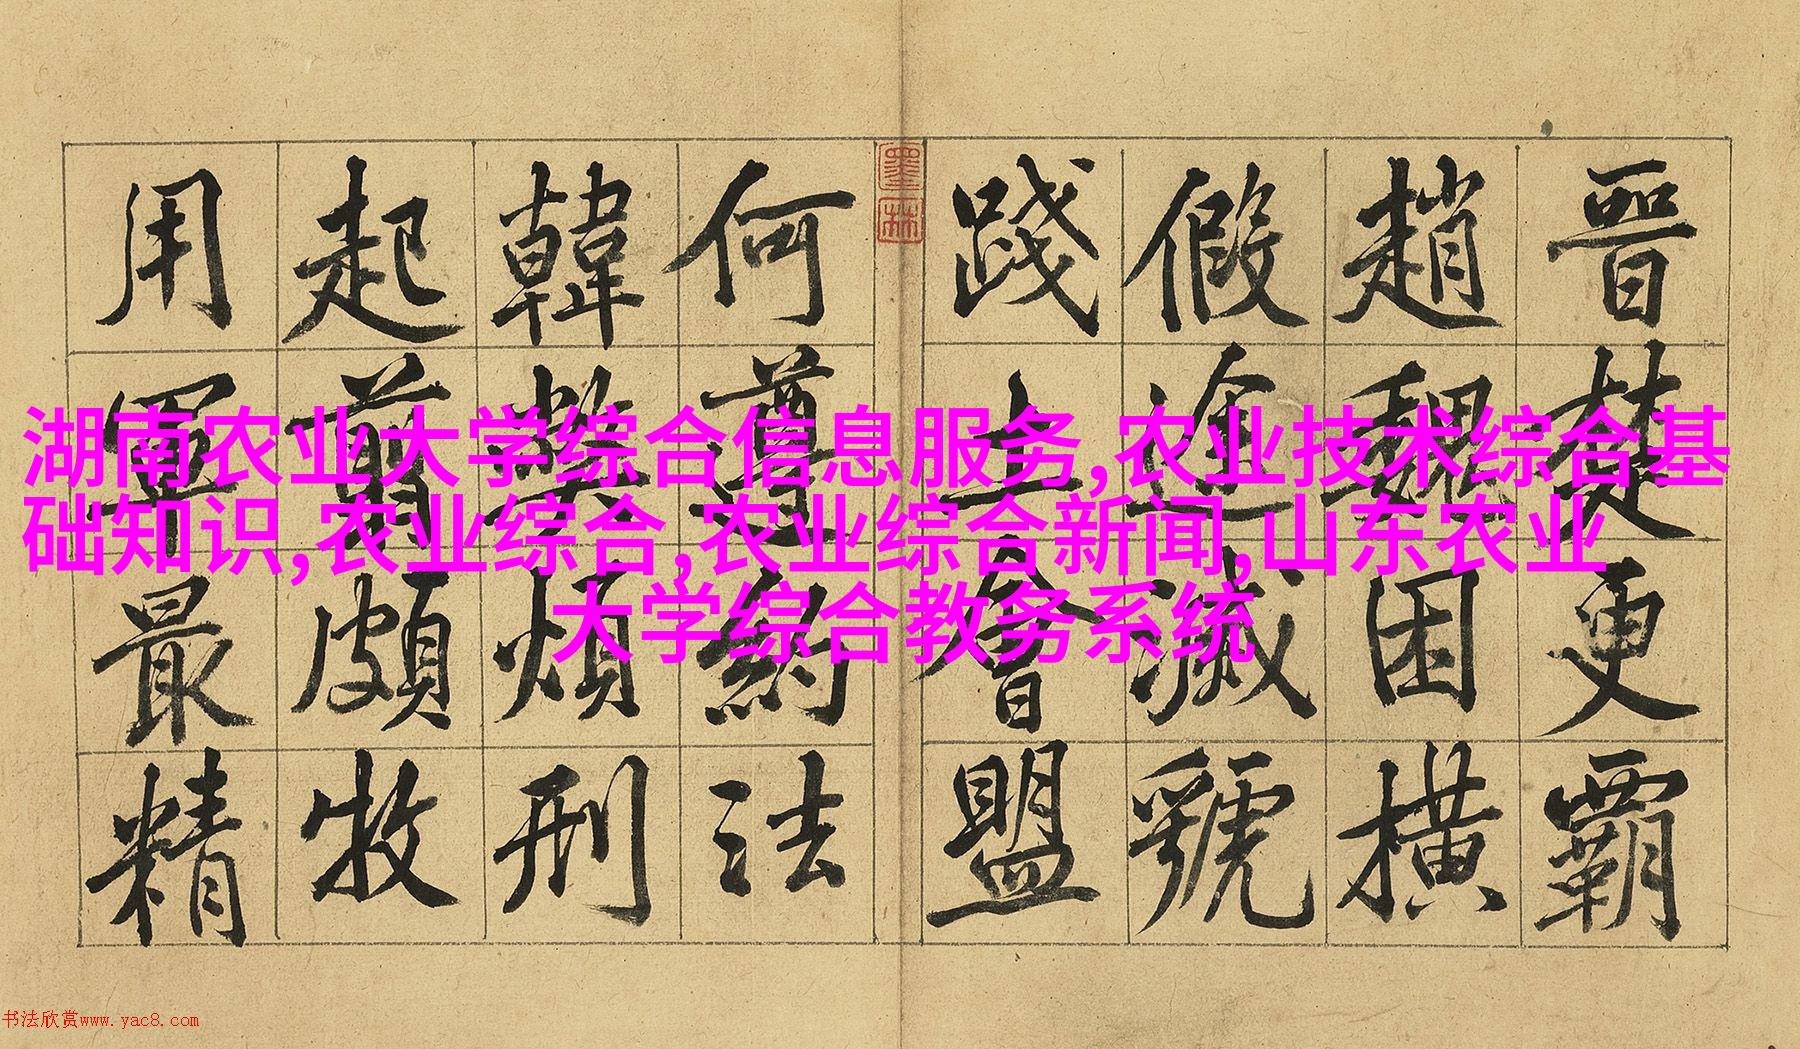 晉楚更霸
趙魏困橫
假途滅虢
踐土會盟
墨林
何遵約法
韓弊煩刑
起翦頗牧
用軍最精
湖南农业大学综合信息服务,农业技术综合基
础知识,农业综合,农业综合新闻,山东农业
大学综合教务系统
书法欣赏www.yac8.com